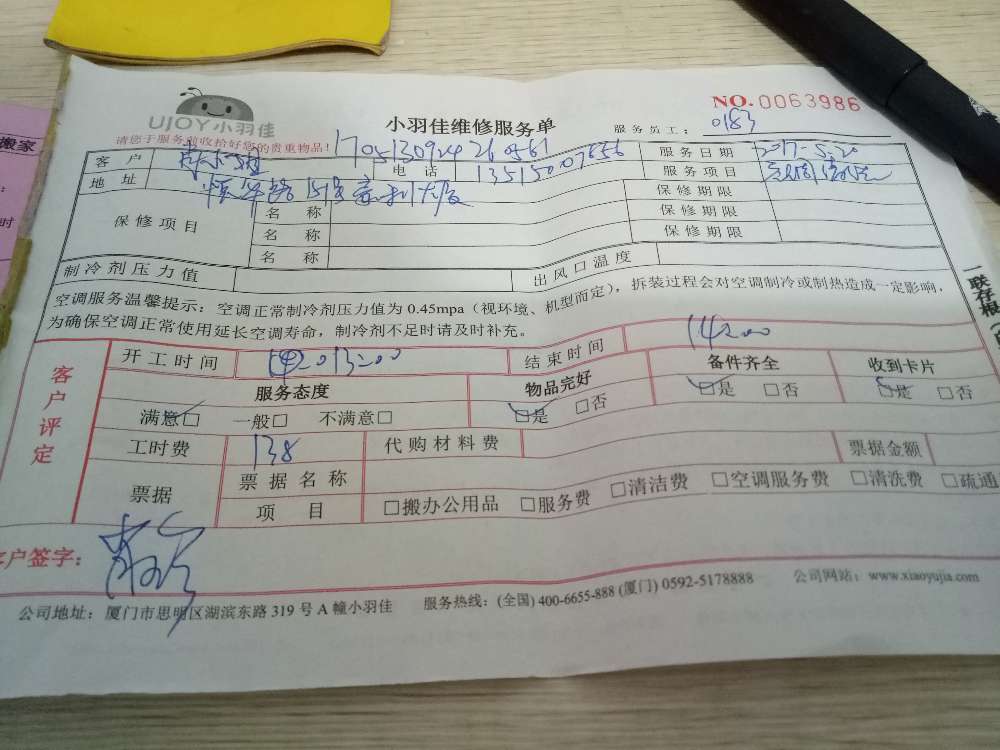 搬家
时
UJOY小羽佳
小羽佳维修服务单
NO.0063986
服务员工：0183
请您于服务前收拾好您的贵重物品！
客户 电话 服务日期 2017-5.20
地址 服务项目
保修项目 名称 保修期限
名称 保修期限
名称 保修期限
制冷剂压力值 出风口温度
空调服务温馨提示：空调正常制冷剂压力值为 0.45mpa（视环境、机型而定），拆装过程会对空调制冷或制热造成一定影响，
为确保空调正常使用延长空调寿命，制冷剂不足时请及时补充。
客户评定
开工时间 结束时间 14:00
服务态度 物品完好 备件齐全 收到卡片
满意□ 一般□ 不满意□ □是 □否 □是 □否 □是 □否
工时费 138 代购材料费 票据金额
票据 票据名称
项目 □搬办公用品 □服务费 □清洁费 □空调服务费 □清洗费 □疏通
客户签字：
公司地址：厦门市思明区湖滨东路 319 号 A 幢小羽佳 服务热线：(全国) 400-6655-888 (厦门) 0592-5178888 公司网站：www.xiaoyujia.com
联存根